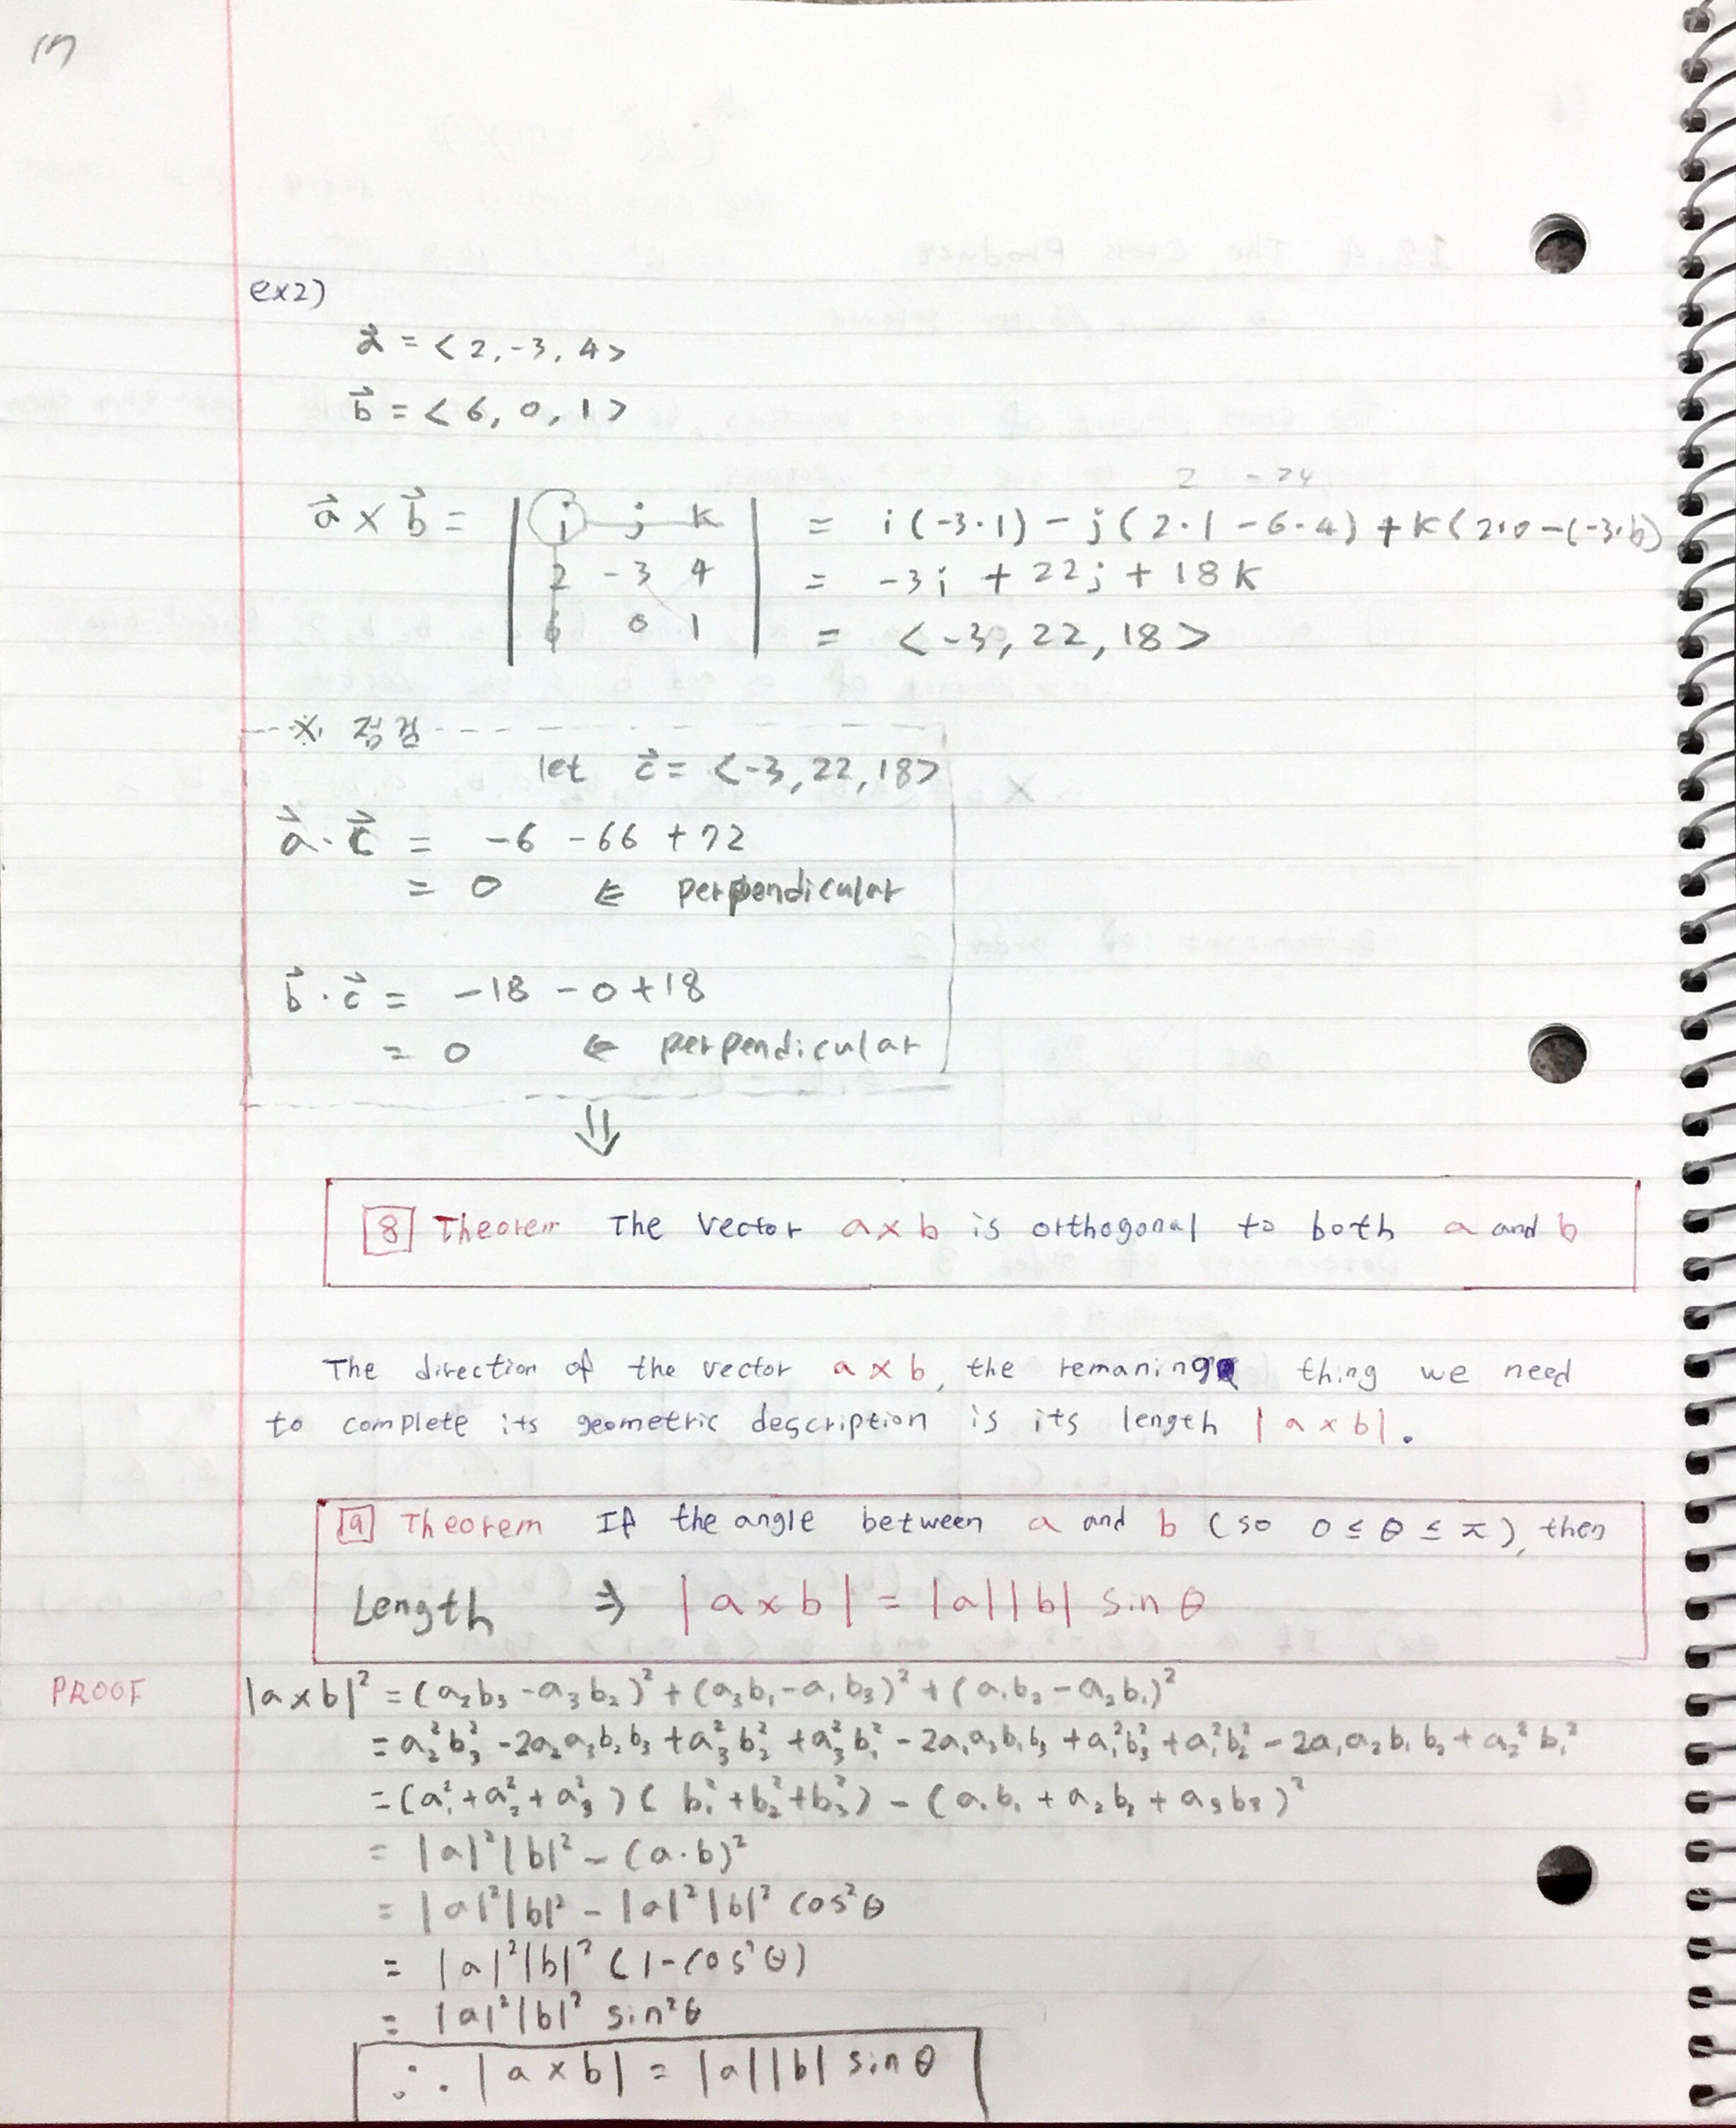 17
ex2)
a⃗ = < 2, -3, 4 >
b⃗ = < 6, 0, 1 >
2 -24
a⃗ × b⃗ = | i j k | = i(-3·1) - j(2·1 - 6·4) + k(2·0 - (-3·6)
2 -3 4 = -3i + 22j + 18k
6 0 1 = < -3, 22, 18 >
※ 점검
let c⃗ = < -3, 22, 18 >
a⃗ · c⃗ = -6 -66 +72
= 0 ⇐ perpendicular
b⃗ · c⃗ = -18 - 0 + 18
= 0 ⇐ perpendicular
⇓
8 Theorem The vector a × b is orthogonal to both a and b
The direction of the vector a × b, the remaning thing we need
to complete its geometric description is its length |a × b|.
9 Theorem If the angle between a and b (so 0 ≤ θ ≤ π), then
Length ⇒ |a × b| = |a||b| sin θ
PROOF |a × b|² = (a₂b₃ - a₃b₂)² + (a₃b₁ - a₁b₃)² + (a₁b₂ - a₂b₁)²
= a₂²b₃² - 2a₂a₃b₂b₃ + a₃²b₂² + a₃²b₁² - 2a₁a₃b₁b₃ + a₁²b₃² + a₁²b₂² - 2a₁a₂b₁b₂ + a₂²b₁²
= (a₁² + a₂² + a₃²)(b₁² + b₂² + b₃²) - (a₁b₁ + a₂b₂ + a₃b₃)²
= |a|²|b|² - (a·b)²
= |a|²|b|² - |a|²|b|² cos²θ
= |a|²|b|² (1 - cos²θ)
= |a|²|b|² sin²θ
∴ |a × b| = |a||b| sin θ